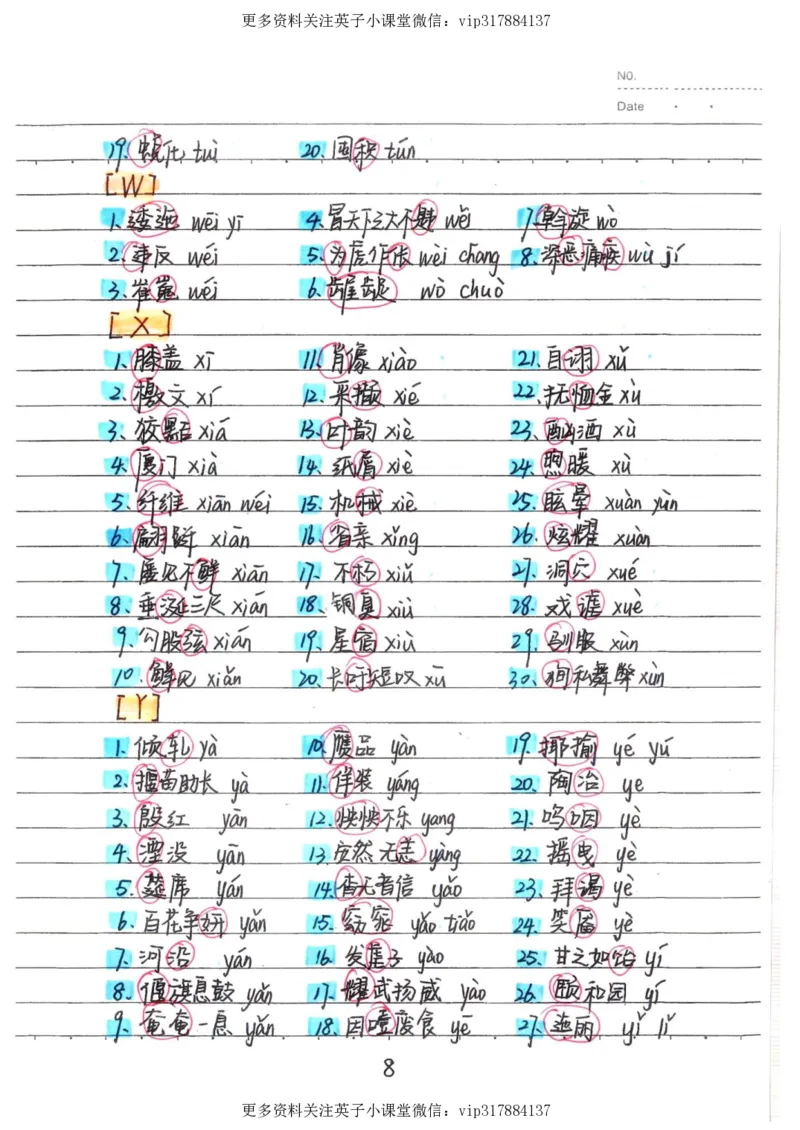 更多资料关注英子小课堂微信：vip317884137
No.
Date
19. 蜕化 tuì 20. 囤积 tún
[W]
1. 逶迤 wēi yí 4. 冒天下之大不韪 wěi 7. 斡旋 wò
2. 违反 wéi 5. 为虎作伥 wèi chāng 8. 深恶痛疾 wù jí
3. 崔嵬 wéi 6. 龌龊 wò chuò
[X]
1. 膝盖 xī 11. 肖像 xiào 21. 自诩 xǔ
2. 檄文 xí 12. 采撷 xié 22. 抚恤金 xù
3. 狡黠 xiá 13. 叶韵 xié 23. 酗酒 xù
4. 厦门 xià 14. 纸屑 xiè 24. 煦暖 xù
5. 纤维 xiān wéi 15. 机械 xiè 25. 眩晕 xuàn yùn
6. 翩跹 xiān 16. 省亲 xǐng 26. 炫耀 xuàn
7. 屡见不鲜 xiān 17. 不朽 xiǔ 27. 洞穴 xué
8. 垂涎三尺 xián 18. 铜臭 xiù 28. 戏谑 xuè
9. 勾股弦 xián 19. 星宿 xiù 29. 驯服 xùn
10. 鲜见 xiǎn 20. 长吁短叹 xū 30. 徇私舞弊 xùn
[Y]
1. 倾轧 yà 10. 赝品 yàn 19. 揶揄 yé yú
2. 揠苗助长 yà 11. 佯装 yáng 20. 陶冶 ye
3. 殷红 yān 12. 怏怏不乐 yang 21. 呜咽 yè
4. 湮没 yān 13. 安然无恙 yàng 22. 摇曳 yè
5. 筵席 yán 14. 杳无音信 yǎo 23. 拜谒 yè
6. 百花争妍 yán 15. 窈窕 yǎo tiǎo 24. 笑靥 yè
7. 河沿 yán 16. 发疟子 yào 25. 甘之如饴 yí
8. 偃旗息鼓 yǎn 17. 耀武扬威 yào 26. 颐和园 yí
9. 奄奄一息 yǎn 18. 因噎废食 yē 27. 迤逦 yǐ lǐ
8
更多资料关注英子小课堂微信：vip317884137